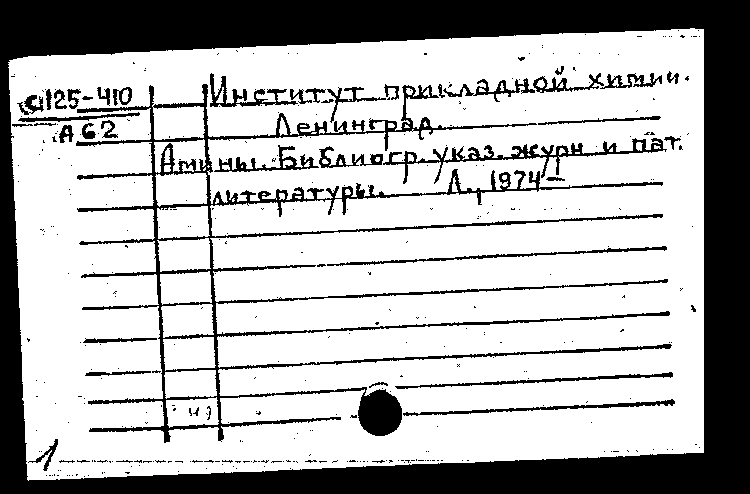 125-410
А62
Институт прикладной химии.
Ленинград.
Амины. Библиогр. указ. журн и пат.
литературы. Л., 1974-
1